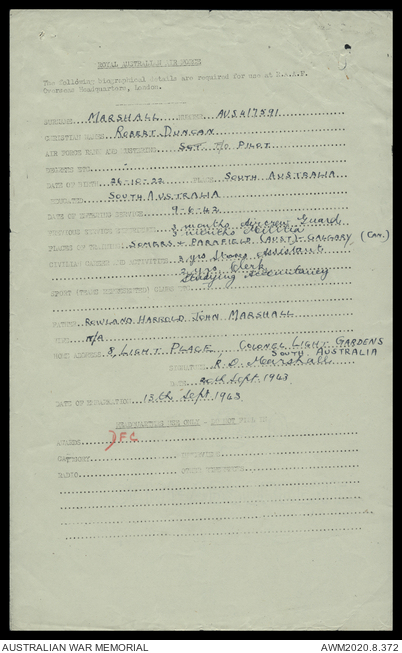 ROYAL AUSTRALIAN AIR FORCE
The following biographical details are required for use at R.A.A.F.
Overseas Headquarters, London.
SURNAME MARSHALL NUMBER AUS417591
CHRISTIAN NAMES ROBERT DUNCAN
AIR FORCE RANK AND MUSTERING SGT T/O PILOT
DATE OF BIRTH 26-10-22 PLACE SOUTH AUSTRALIA
ENLISTED SOUTH AUSTRALIA
DATE OF 9-6-42
PREVIOUS SERVICE 3 months Aircrew Guard
3 months Militia
PLACES OF TRAINING SOMERS + PARAFIELD (AUST) - CALGARY (Can.)
CIVILIAN CAREER AND ACTIVITIES 3 yrs Stores Assistant
2 yrs Clerk
Studying Accountancy
SPORT
FATHER ROWLAND HARROLD JOHN MARSHALL
N/A
HOME ADDRESS 8 LIGHT PLACE COLONEL LIGHT GARDENS
SOUTH AUSTRALIA
SIGNATURE R.D. Marshall
DATE 20th Sept 1943
DATE OF EMBARKATION 13th Sept 1943
HEADQUARTERS USE ONLY -
AWARDS DFC
CATEGORY
AUSTRALIAN WAR MEMORIAL AWM2020.8.372